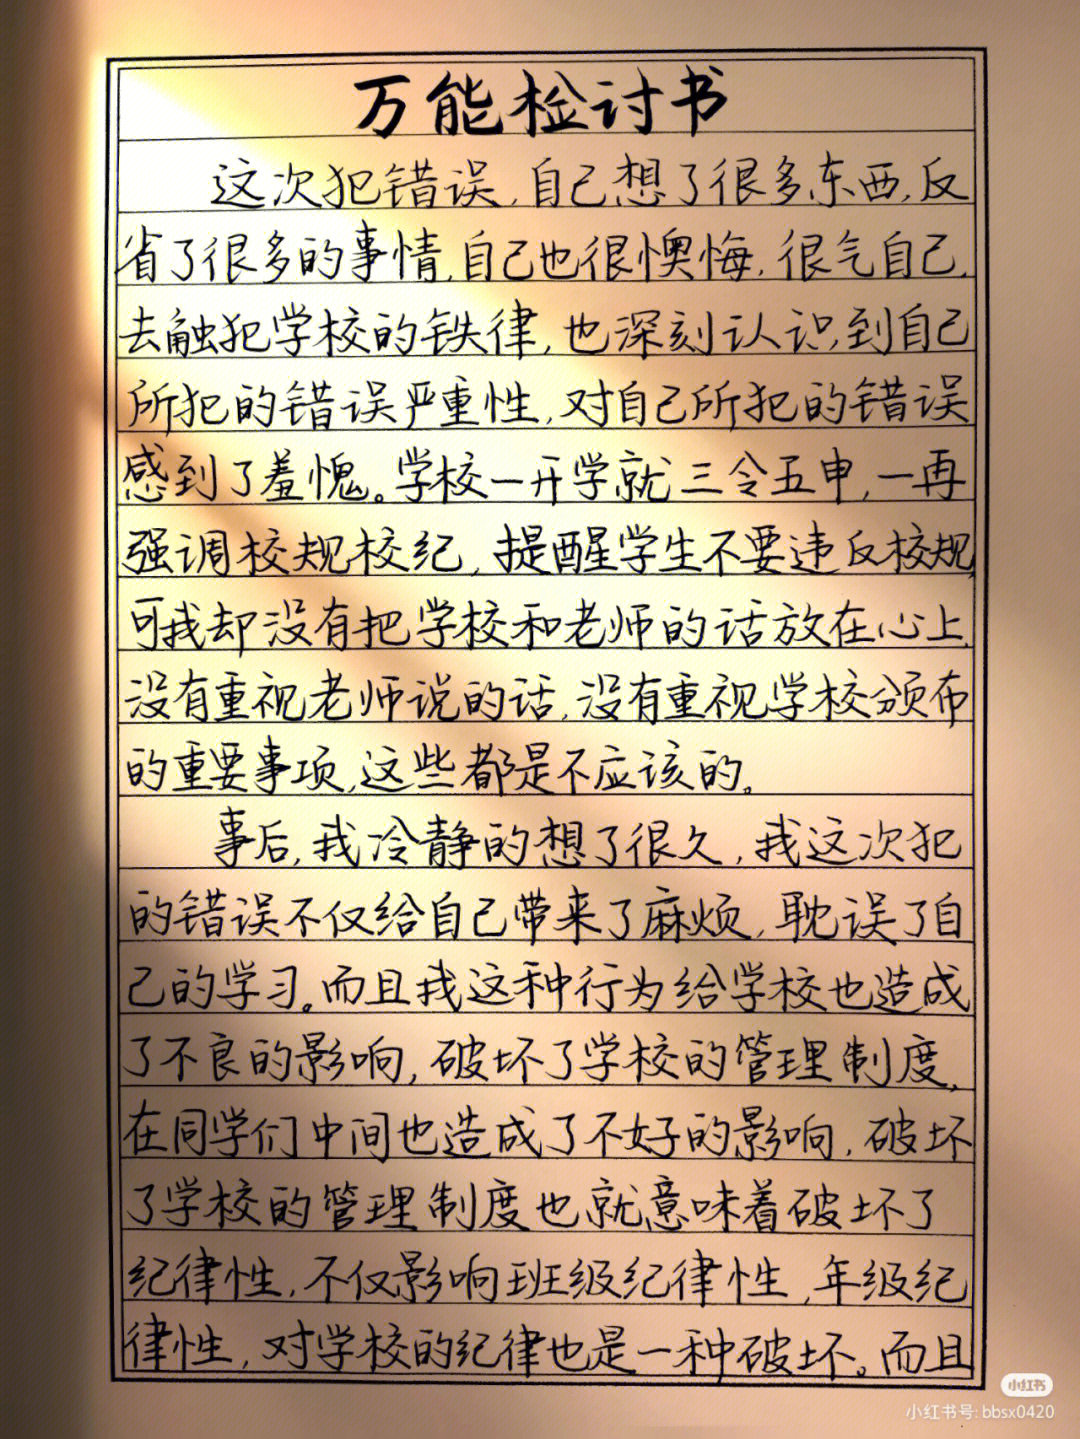 万能检讨书
这次犯错误,自己想了很多东西,反
省了很多的事情,自己也很懊悔,很气自己,
去触犯学校的铁律,也深刻认识到自己
所犯的错误严重性,对自己所犯的错误
感到了羞愧。学校一开学就三令五申,一再
强调校规校纪,提醒学生不要违反校规,
可我却没有把学校和老师的话放在心上,
没有重视老师说的话,没有重视学校颁布
的重要事项,这些都是不应该的。
事后,我冷静的想了很久,我这次犯
的错误不仅给自己带来了麻烦,耽误了自
己的学习。而且我这种行为给学校也造成
了不良的影响,破坏了学校的管理制度,
在同学们中间也造成了不好的影响,破坏
了学校的管理制度也就意味着破坏了
纪律性,不仅影响班级纪律性,年级纪
律性,对学校的纪律也是一种破坏。而且
小红书
小红书号: bbsx0420